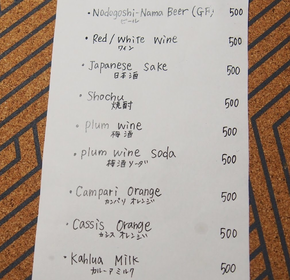 • Nodogoshi-Nama Beer (G.F) 500
ビール
• Red/White wine 500
ワイン
• Japanese sake 500
日本酒
• Shochu 500
焼酎
• plum wine 500
梅酒
• plum wine soda 500
梅酒ソーダ
• Campari Orange 500
カンパリ オレンジ
• Cassis Orange 500
カシス オレンジ
• Kahlua Milk 500
カルーアミルク